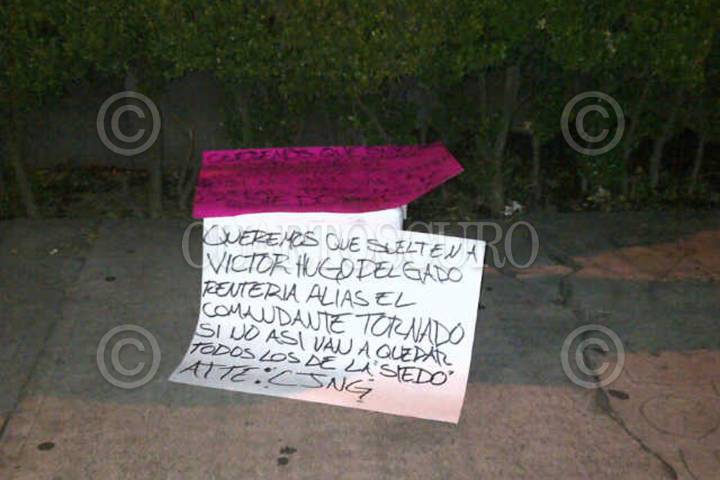 QUEREMOS QUE
QUEREMOS QUE SUELTEN A
VICTOR HUGO DELGADO
RENTERIA ALIAS EL
COMANDANTE TORNADO
SI NO ASI VAN A QUEDAR
TODOS LOS DE LA "SIEDO"
ATTE: CJNG
CUARTOSCURO
© © © ©